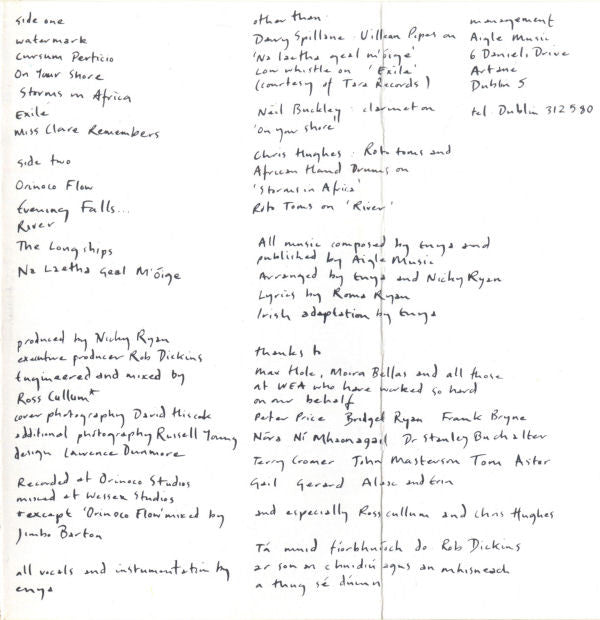 side one
watermark
Cursum Perficio
On Your Shore
Storms in Africa
Exile
Miss Clare Remembers
side two
Orinoco Flow
Evening Falls...
River
The Longships
Na Laetha Geal M'óige
produced by Nicky Ryan
executive producer Rob Dickins
Engineered and mixed by
Ross Cullum*
cover photography David Hiscock
additional photography Russell Young
design Lawrence Dunmore
Recorded at Orinoco Studios
mixed at Wessex Studios
*except 'Orinoco Flow' mixed by
Jimbo Barton
all vocals and instrumentation by
enya
other than:
Davy Spillane: Uillean Pipes on
'Na laetha geal m'óige'
Low whistle on 'Exile'
(courtesy of Tara Records)
Neil Buckley: clarinet on
'On your shore'
Chris Hughes: Roto toms and
African Hand Drums on
'Storms in Africa'
Roto Toms on 'River'
All music composed by Enya and
published by Aigle Music
Arranged by Enya and Nicky Ryan
Lyrics by Roma Ryan
Irish adaptation by Enya
thanks to
Max Hole, Moira Bellas and all those
at WEA who have worked so hard
on our behalf
Peter Price Bridget Ryan Frank Bryne
Nóra Ní Mhaonagail Dr Stanley Buchalter
Terry Cromer John Masterson Tom Astor
Gail Gerard Alasc and Erin
and especially Ross Cullum and Chris Hughes
Tá muid fíorbhuíoch do Rob Dickins
ar son an chuidiú agus an mhisneach
a thug sé dúinn
management
Aigle Music
6 Danieli Drive
Artane
Dublin 5
tel. Dublin 312580